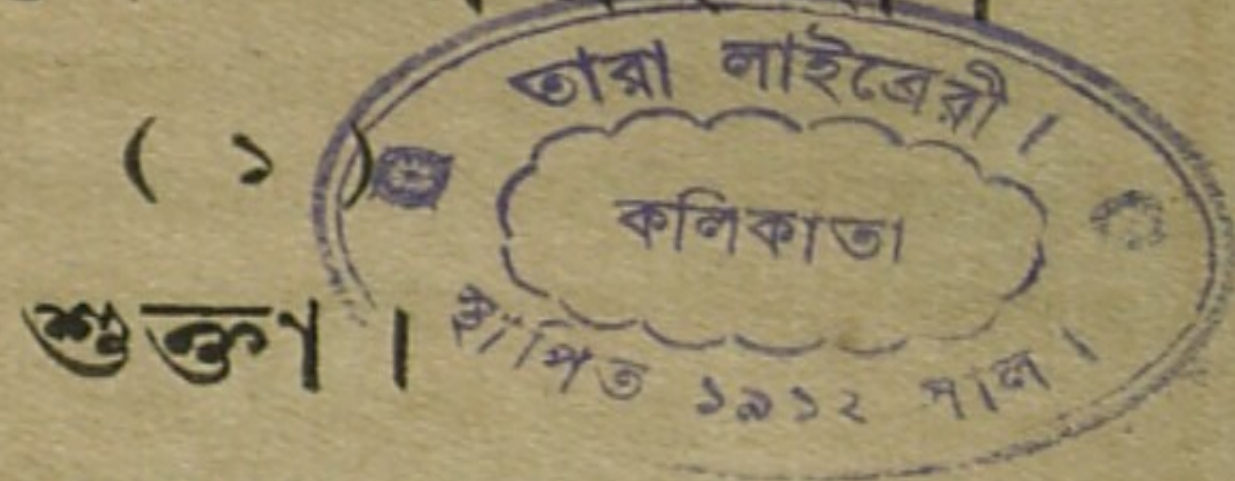 ( ১ )
শুক্তা ।
তারা লাইব্রেরী ।
কলিকাতা
স্থাপিত ১৯১২ সাল ।